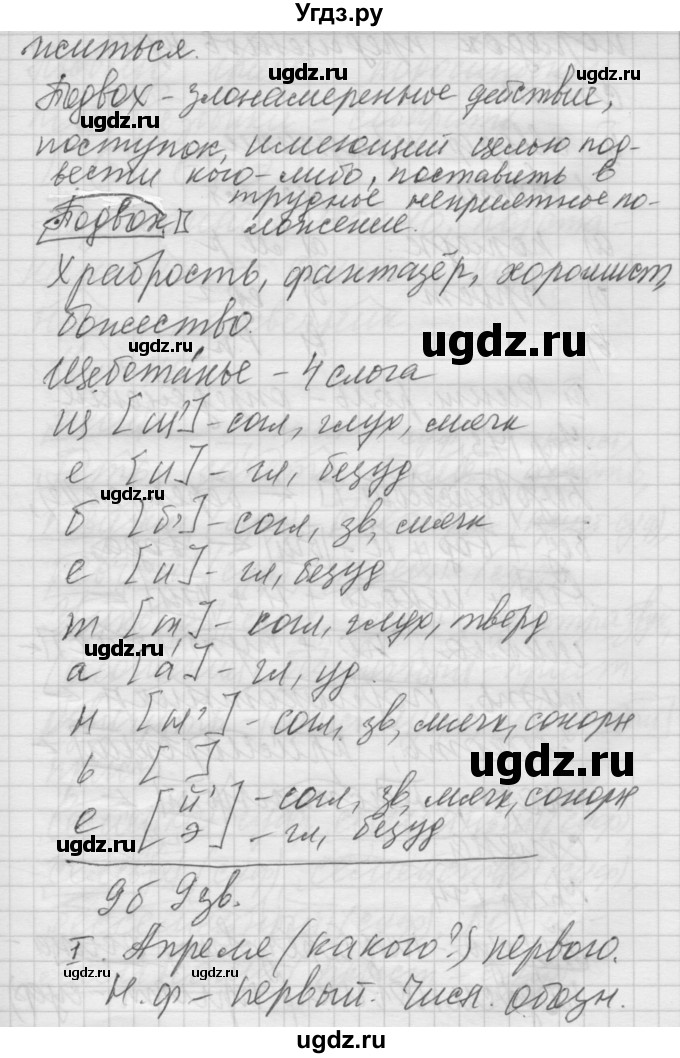 Угдз.ру
житься.
ugdz.ru
ugdz.ru
Подвох - злонамеренное действие,
поступок, имеющий целью под-
вести кого-либо, поставить в
трудное неприятное по-
Подвох
ложение.
ugdz.ru
ugdz.ru
Храбрость, фантазёр, хорошист,
божество.
ugdz.ru
ugdz.ru
Щебета́нье - 4 слога
щ [щ'] - согл, глух, мягк
е [и] - гл, безуд
ugdz.ru
б [б'] - согл, зв, мягк
е [и] - гл, безуд
т [т] - согл, глух, тверд
ugdz.ru
а [а́] - гл, уд
н [н'] - согл, зв, мягк, сонорн
ь [ ]
ugdz.ru
е [й' - согл, зв, мягк, сонорн
э] - гл, безуд
ugdz.ru
9б 9зв.
I. Апреля (какого?) первого.
ugdz.ru
Н.ф - первый. Числ. обозн.
ugdz.ru
ugdz.ru